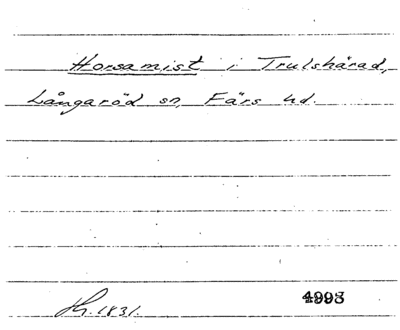 Horsamist i Trulshärad,
Långaröd sn, Färs hd.
Hy. 1831.
4993